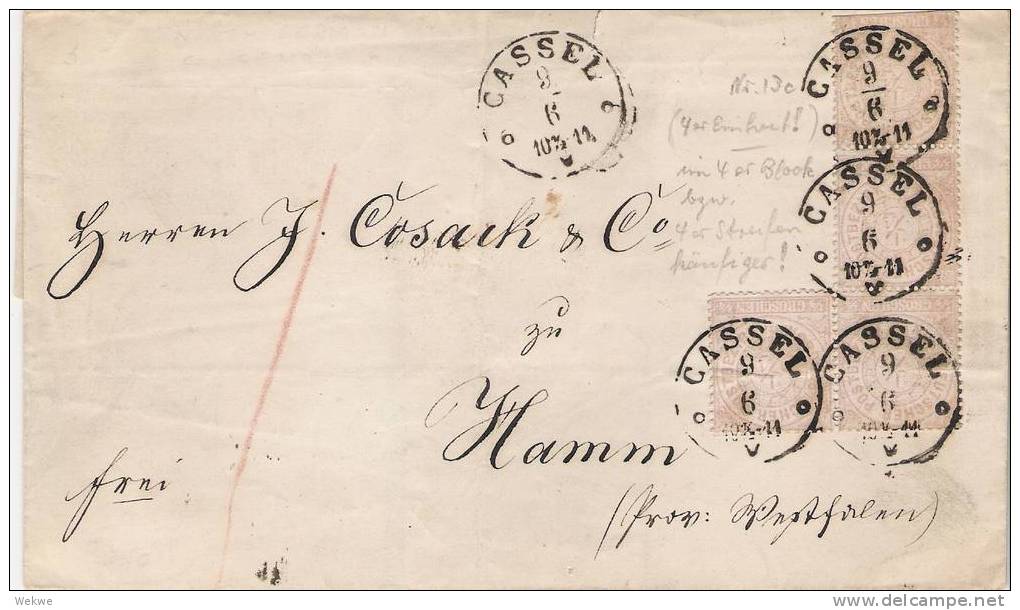 CASSEL
9
6
10½-11
CASSEL
9
6
10½-11
CASSEL
9
6
10½-11
CASSEL
9
6
10½-11
CASSEL
9
6
10½-11
(4er Einheit!)
im 4er Block
bzw.
4er Streifen
häufiger!
Herren J. Cosack & Co
zu
Hamm
frei
(Prov: Westfalen)
GROSCHEN
GROSCHEN
Wekwe
delcampe.net